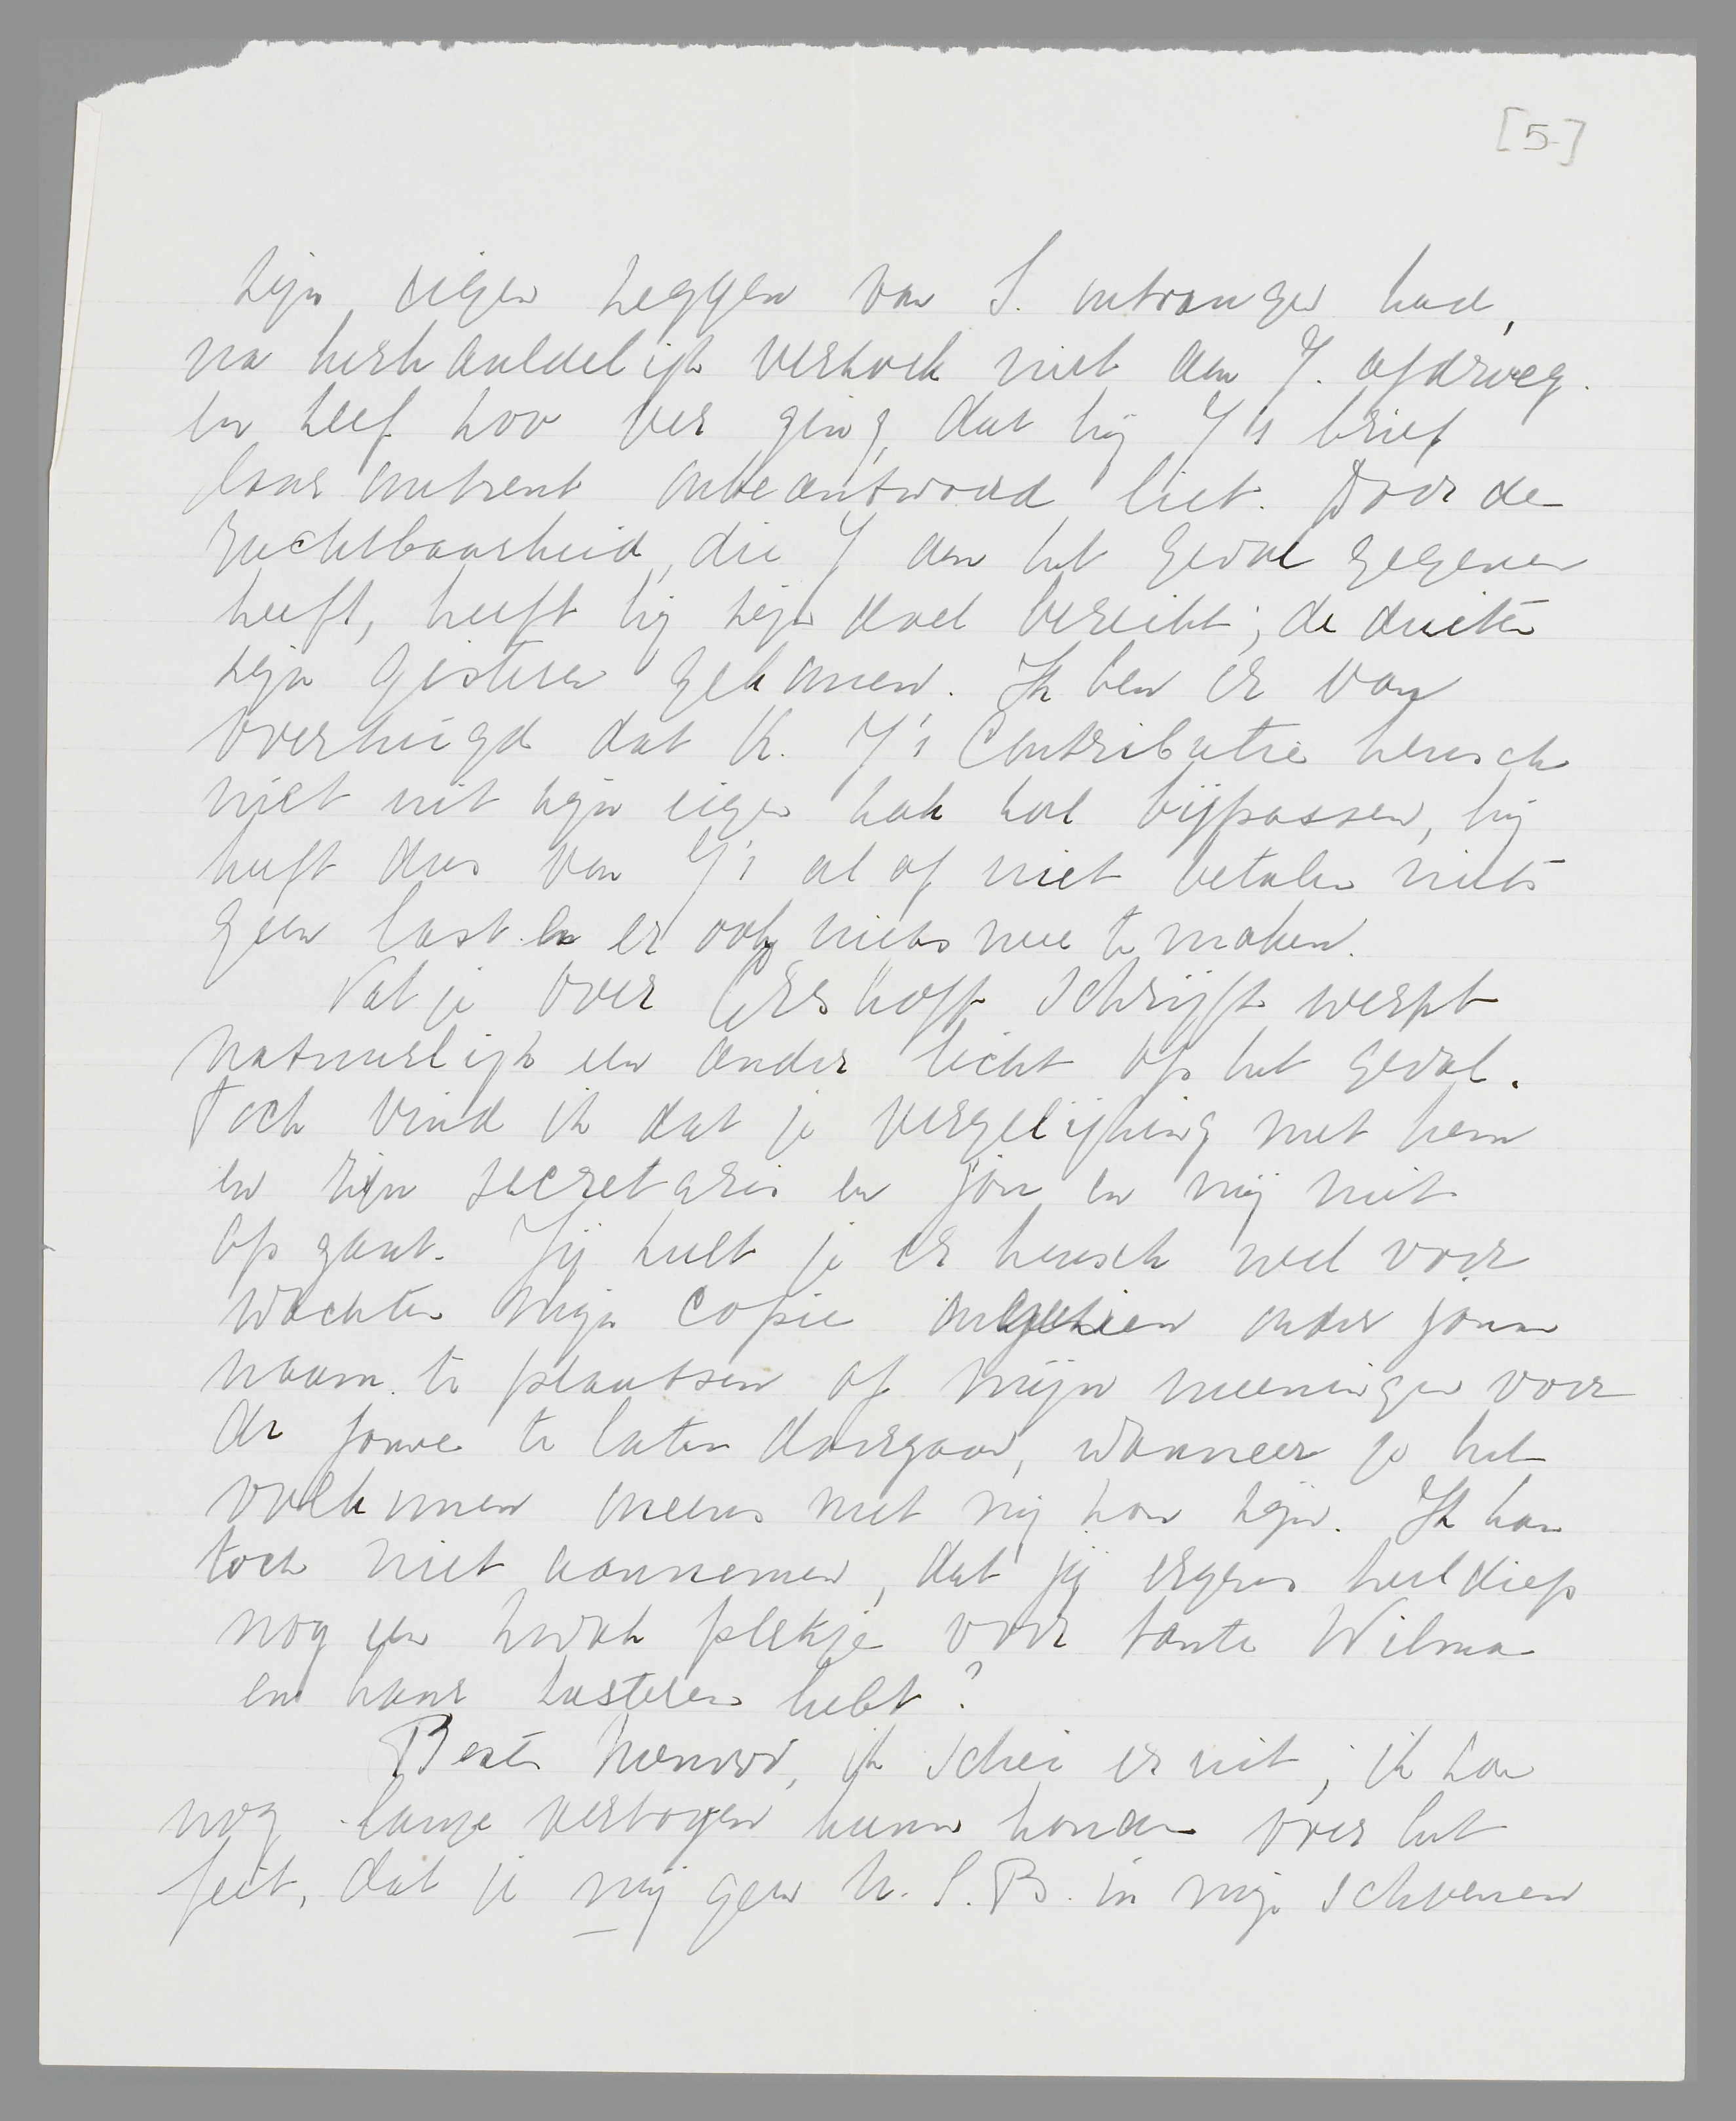 [5]
zijn eigen zeggen van S. ontvangen had,
na herhaaldelijk verzoek niet aan Y. afdroeg.
en zelf zoo ver ging, dat hij Y's brief
daaromtrent onbeantwoord liet. Door de
ruchtbaarheid, die Y aan het geval gegeven
heeft, heeft hij zijn doel bereikt; de duiten
zijn gisteren gekomen. Ik ben er van
overtuigd dat K. Y's Contributie heusch
niet uit zijn eigen zak zal bijpassen, hij
heeft dus van Y's al of niet betalen niets
geen last en er ook niets mee te maken.
Wat je over Greshoff schrijft werpt
natuurlijk een ander licht op het geval.
Toch vind ik dat je vergelijking met hem
en zijn secretaris en jou en mij niet
op gaat. Jij zult je er heusch wel voor
wachten mijn copie ongezien onder jouw
naam te plaatsen of mijn meeningen voor
de jouwe te laten doorgaan, wanneer je het
volkomen oneens met mij zou zijn. Ik kan
toch niet aannemen, dat jij ergens heel diep
nog een zwak plekje voor tante Wilma
en haar zusteren hebt?
Beste Menno, ik schei er uit; ik zou
nog lange vertogen kunnen houden over het
feit, dat je mij geen N.S.B. in mijn schoenen